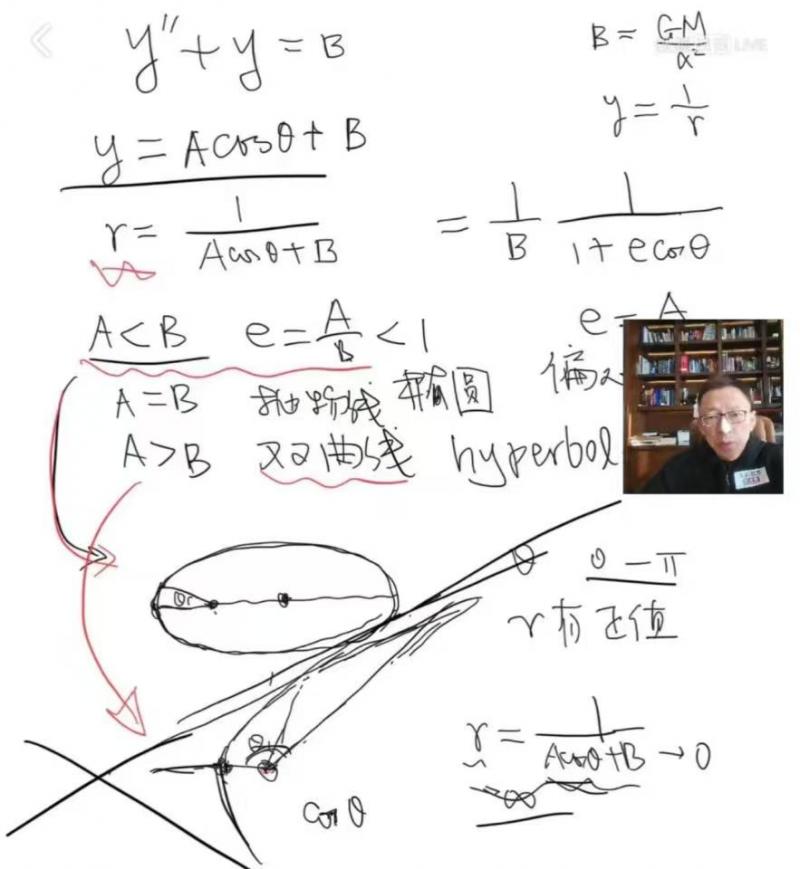 y″ + y = B
B = GM/α²
y = 1/r
y = A cosθ + B
r = 1/(A cosθ + B) = 1/B 1/(1 + e cosθ)
A < B e = A/B < 1 e = A
A = B 抛物线 椭圆 偏心
A > B 双曲线 hyperbol
θ r
0 – π
r 有正值
θ
r = 1/(A cosθ + B → 0
∞
cos θ